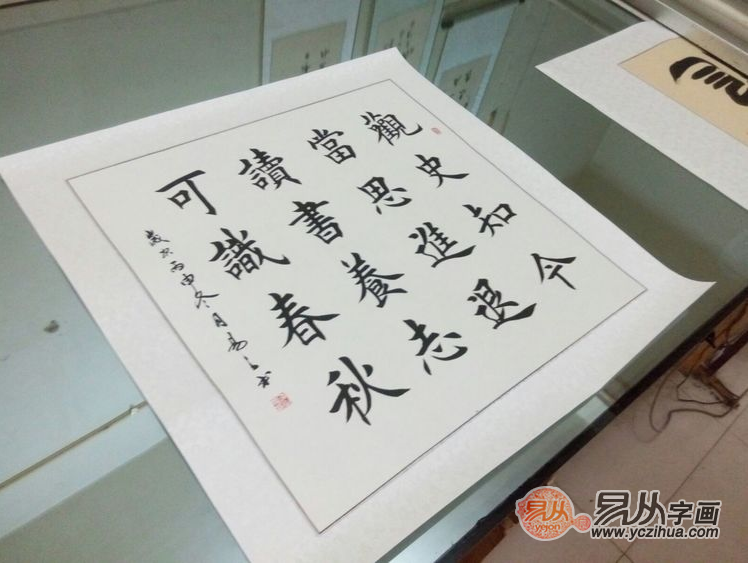 觀史知今
當思進退
讀書養志
可識春秋
歲次丙申冬月易之书
易从
易从字画
www.yczihua.com